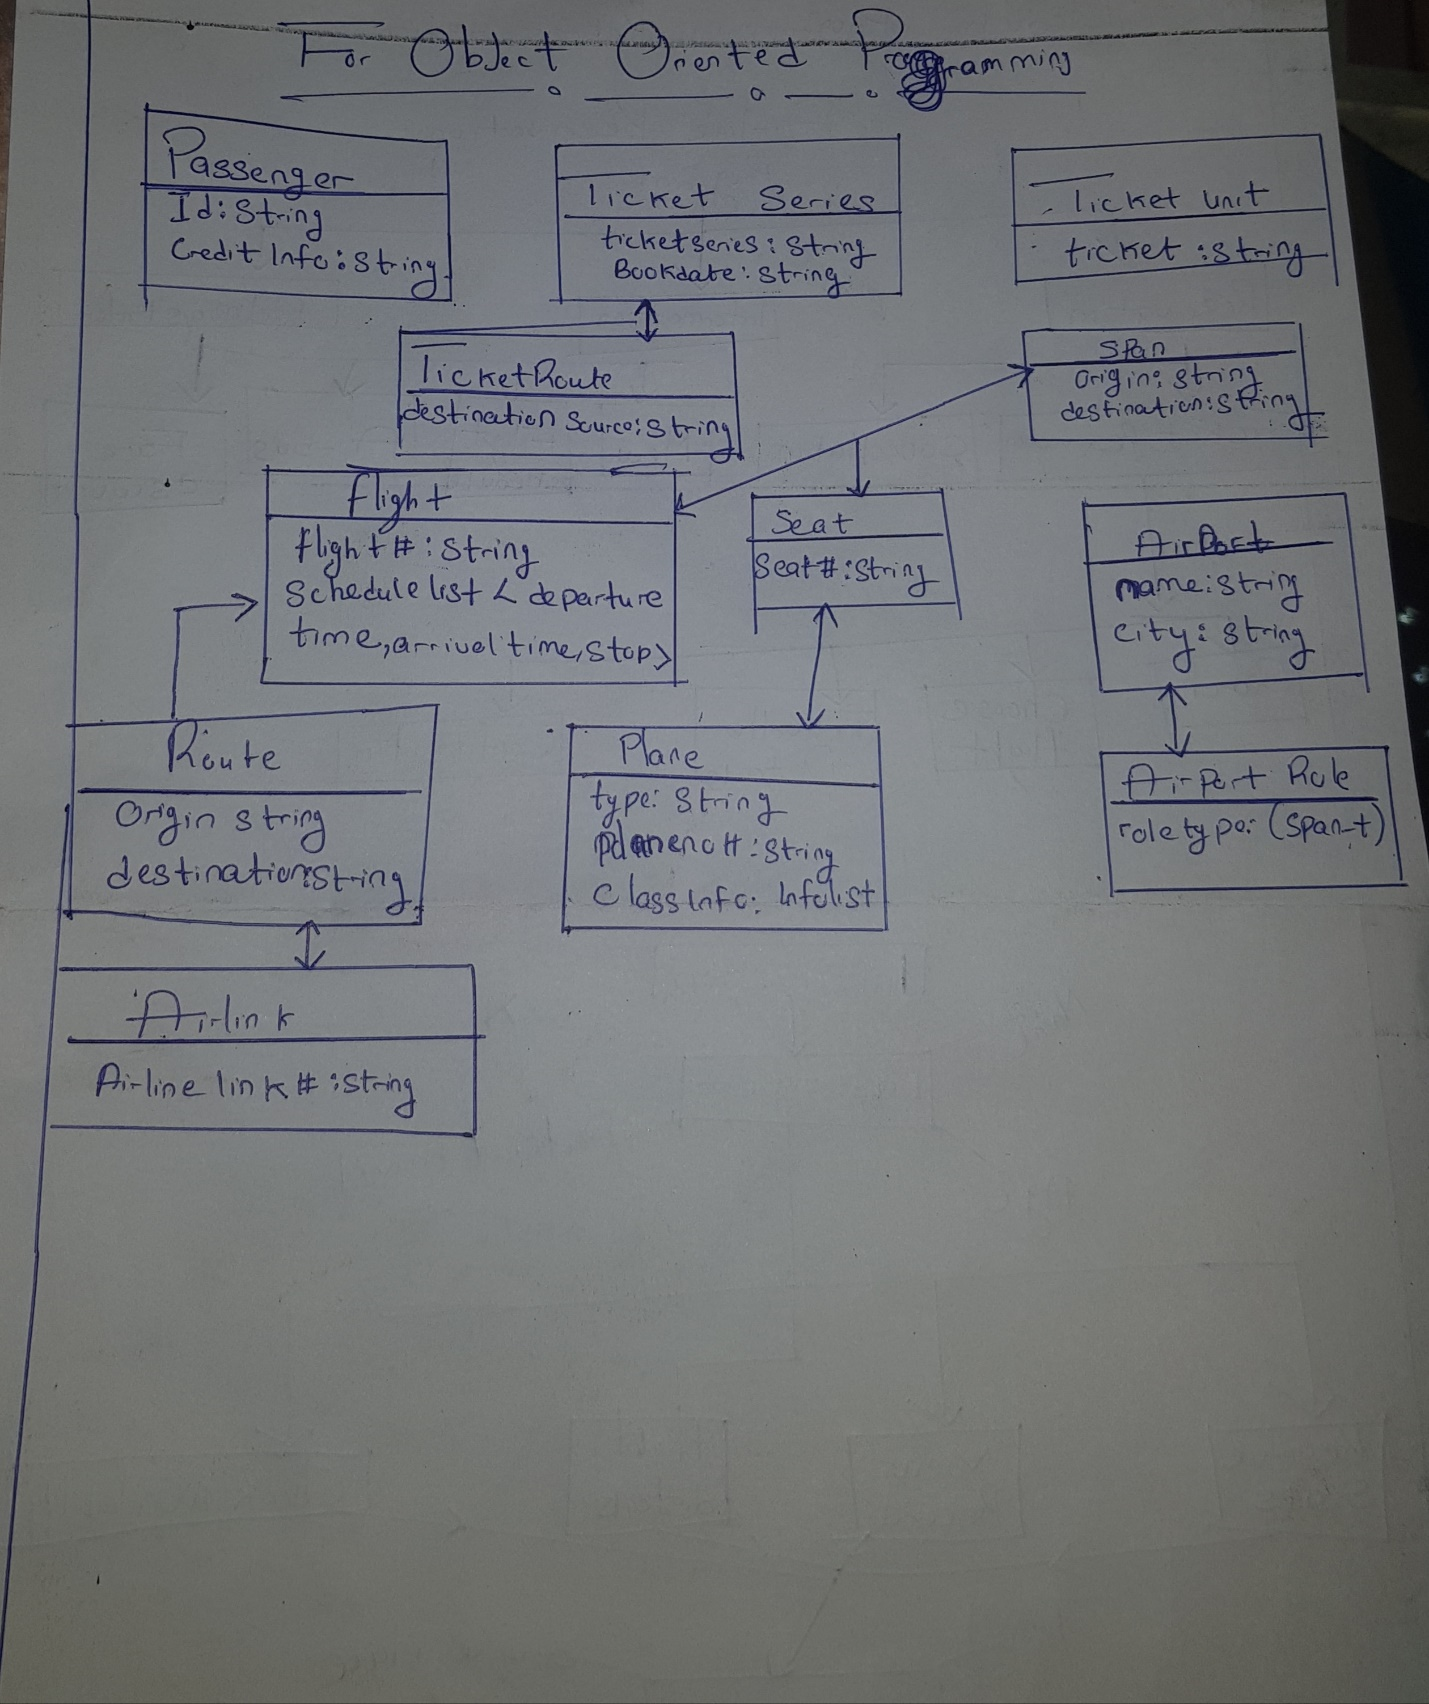 For Object Oriented Programming
Passenger
Id: String
Credit Info: String
Ticket Series
ticketseries: String
Bookdate: String
Ticket unit
ticket: String
TicketRoute
destination Source: String
Span
Origin: String
destination: String
flight
flight#: String
Schedule list < departure
time, arrivel time, stop>
Seat
Seat#: String
AirPort
name: String
city: String
Route
Origin String
destination: String
Plane
type: String
planeno#: String
Class Info: Infolist
AirPort Role
role type: (Span-t)
Airlink
Airline link#: String